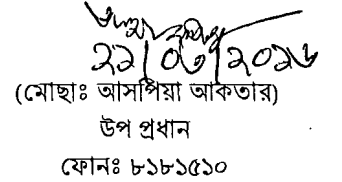 ২২/০৩/২০১৬
(মোছাঃ আসপিয়া আকতার)
উপ প্রধান
ফোনঃ ৮১৮১৫১০